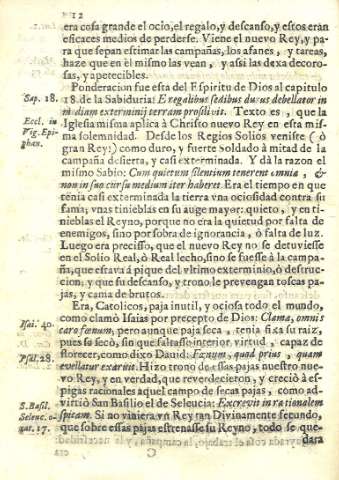 12
era cosa grande el ocio, el regalo, y descanso, y estos eran
eficaces medios de perderse. Viene el nuevo Rey, y pa-
ra que sepan estimar las campañas, los afanes, y tareas,
haze que en èl mismo las vean, y assi las dexa decoro-
sas, y apetecibles.
Ponderacion fue esta del Espiritu de Dios al capitulo
Sap. 18.
18. de la Sabiduria: E regalibus sedibus durus debellator in
mediam exterminij terram prosilivit. Texto es, que la
Eccl. in
Vig. Epi-
phan.
Iglesia misma aplica à Christo nuevo Rey en esta mis-
ma solemnidad. Desde los Regios Solios veniste (ò
gran Rey!) como duro, y fuerte Soldado à mitad de la
campaña desierta, y casi exterminada. Y dà la razon el
mismo Sabio: Cum quietum silentium tenerent omnia, &
nox in suo cursu medium iter haberet. Era el tiempo en que
tenia casi exterminada la tierra vna ociosidad contra su
fama; vnas tinieblas en su auge mayor: quieto, y en ti-
nieblas el Reyno, porque no era la quietud por falta de
enemigos, sino por sobra de ignorancia, ò falta de luz.
Luego era precisso, que el nuevo Rey no se detuviesse
en el Solio Real, ò Real lecho, sino se fuesse à la campa-
ña, que estava á pique del vltimo exterminio, ò destruc-
cion; y que su descanso, y trono le prevengan toscas pa-
jas, y cama de brutos.
Era, Catolicos, paja inutil, y ociosa todo el mundo,
Isai. 40.
como clamò Isaias por precepto de Dios: Clama, omnis
caro fœnum, pero aunque paja seca, tenia fixa su raiz,
pues se secò, sin que faltasse interior virtud, capaz de
Psal. 28.
florecer, como dixo David: Fœnum, quod prius, quam
evellatur exaruit. Hizo trono de essas pajas nuestro nue-
vo Rey, y en verdad, que reverdecieron, y creciò à es-
pigas racionales aquel campo de secas pajas, como ad-
S. Basil.
Seleuc. o-
rat. 17.
virtiò San Basilio el de Seleucia: Excrevit in rationalem
spicam. Si no viniera vn Rey tan Divinamente fecundo,
que sobre essas pajas estrenasse su Reyno, todo se que-
dara
C